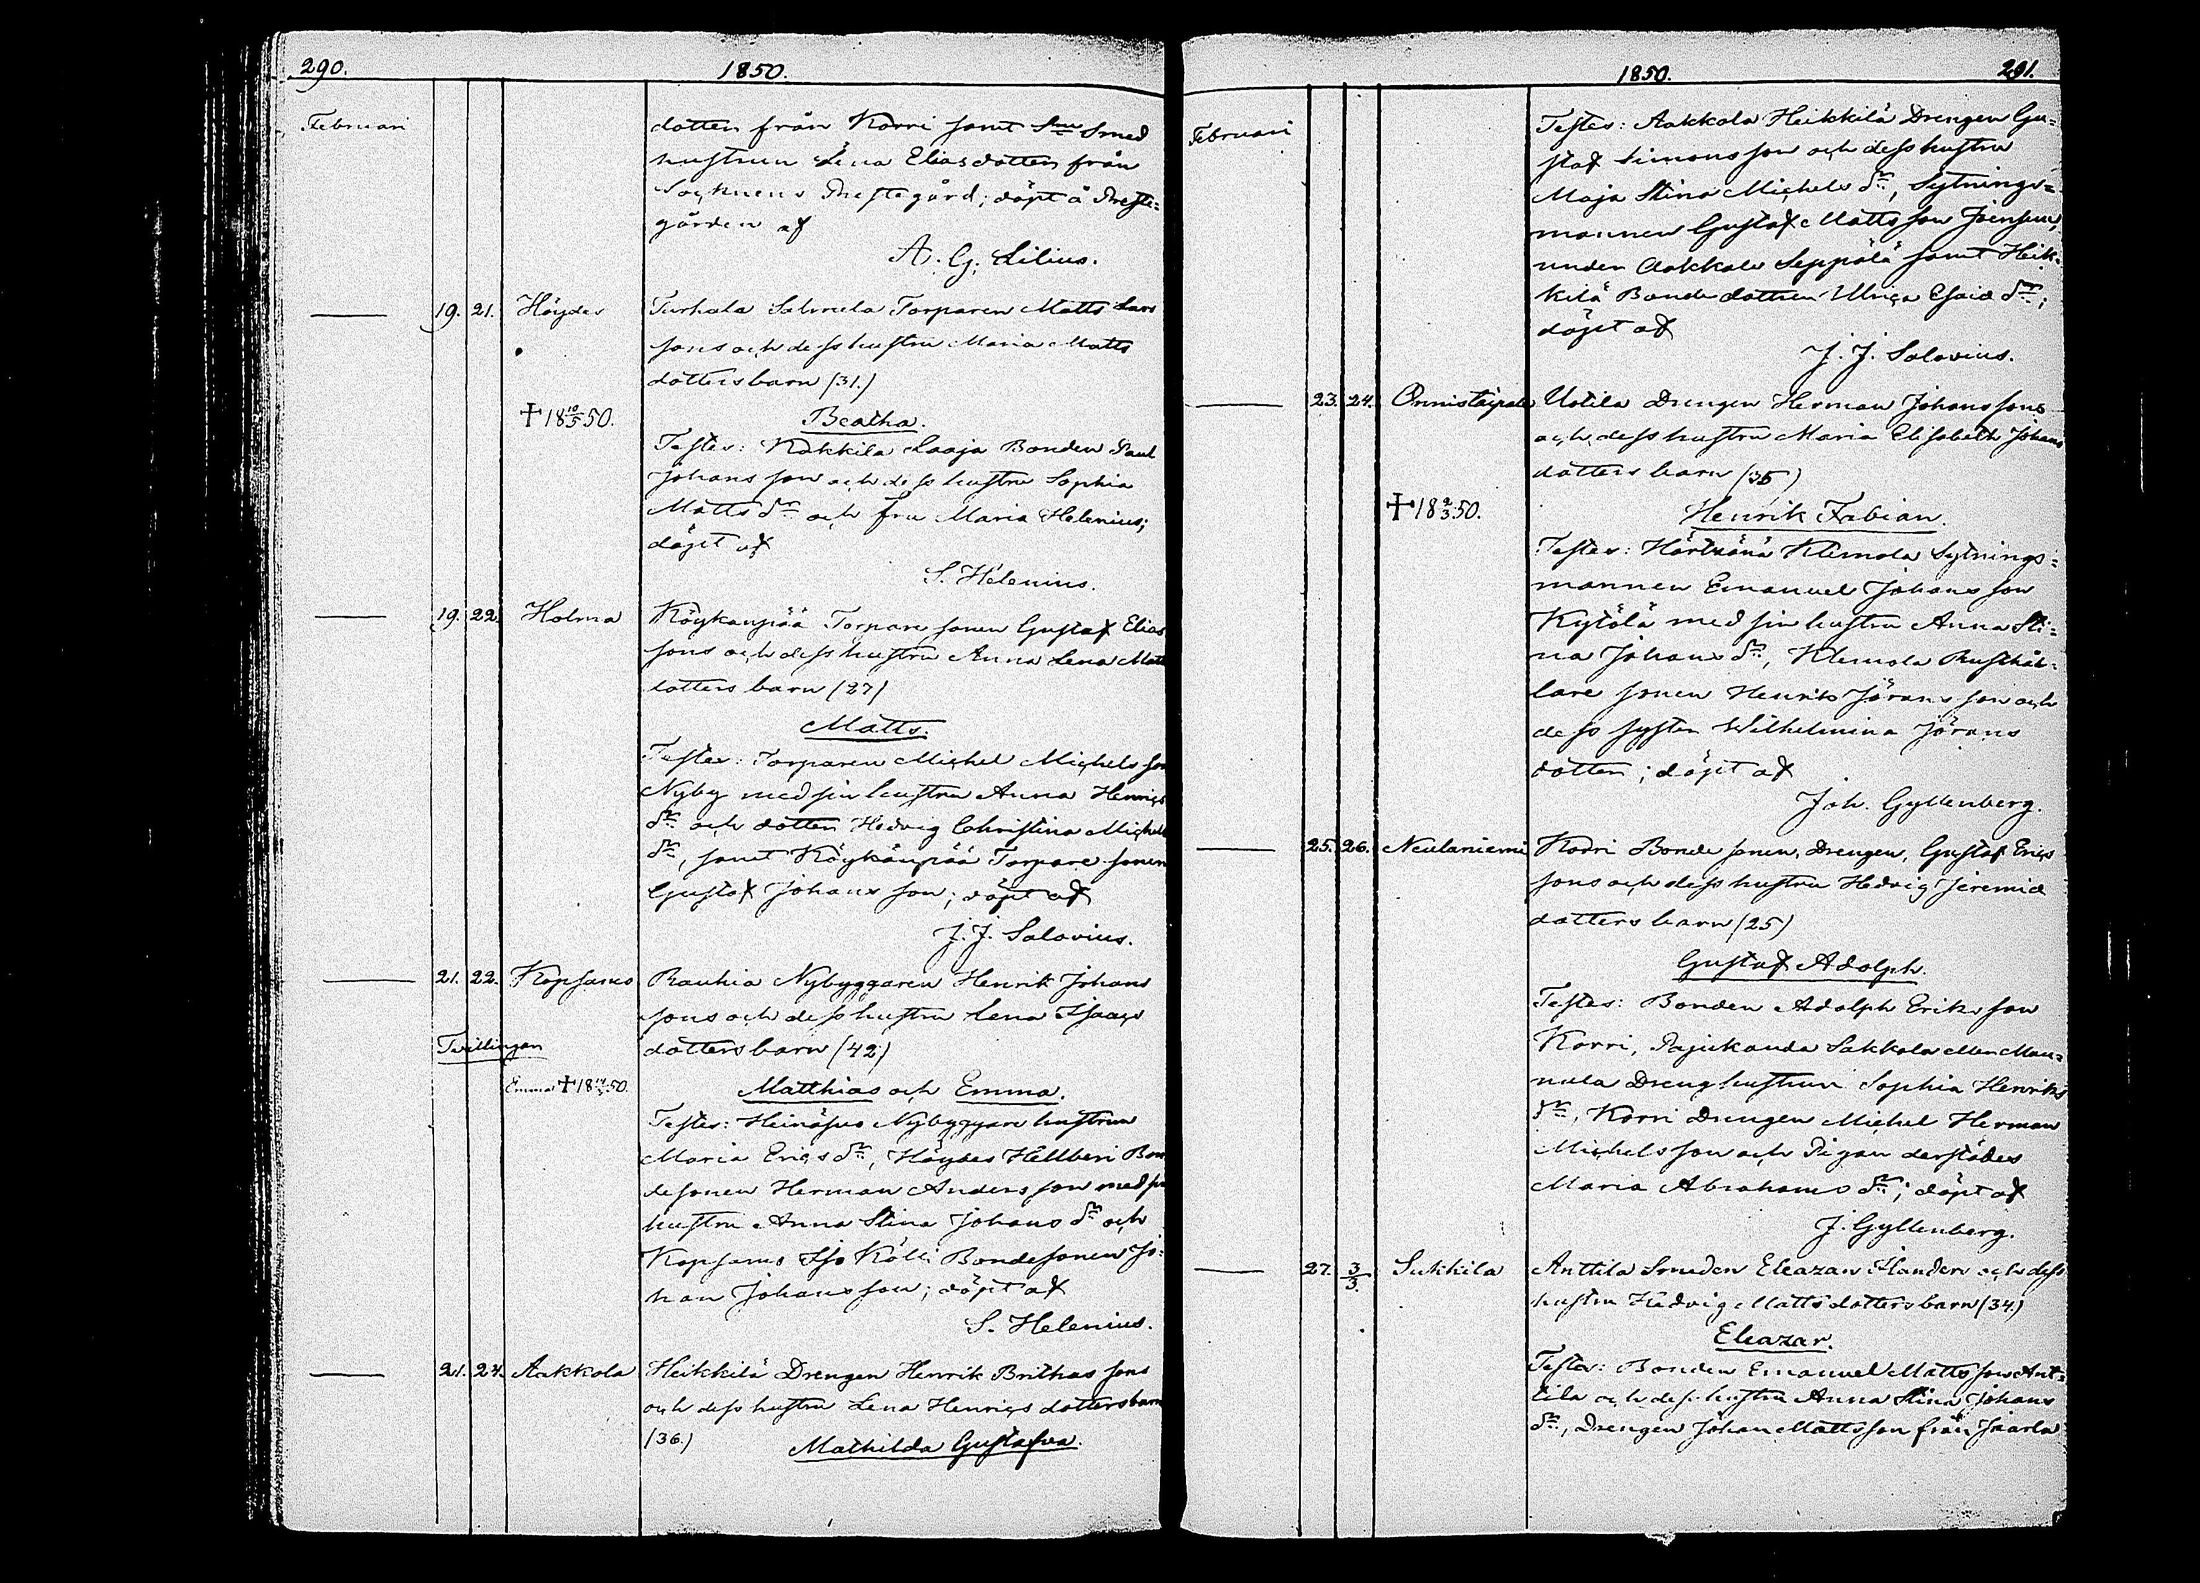 290.
1850.
Februari
dotter från Korri samt Smed
hustrun Lena Eliasdotter från
Socknens Prestegård; döpt å Preste-
gården af
A. G. Lilius.
19. 21. Höydes Turkala Salmela Torparen Matts Lars
sons och dess hustru Maria Matts
dotters barn (31.)
✝ 18 10/5 50.
Beatha.
Testes: Kakkila Laaja Bonden Paul
Johansson och dess hustru Sophia
Matts dr. och fru Maria Helenius;
döpt af
S. Helenius.
19. 22. Holma Köykänpää Torpare sonen Gustaf Elias
sons och dess hustru Anna Lena Matts
dotters barn (27)
Matts.
Testes: Torparen Michel Michelsson
Nyby med sin hustru Anna Henrics
dr. och dotter Hedvig Christina Michels
dr., samt Köykänpää Torpare sonen
Gustaf Johansson; döpt af
J. J. Salovius.
21. 22. Kopsamo Rauhia Nybyggaren Henrik Johans
sons och dess hustru Lena Isaacs
Twillingar dotters barn (42)
Emma ✝ 18 50.
Matthias och Emma.
Testes: Heinäsuo Nybyggare hustrun
Maria Erics dr., Höydes Hellberi Bon
desonen Herman Andersson med sin
hustru Anna Stina Johans dr. och
Kopsamo Iso Kölli Bondesonen Jo-
han Johansson; döpt af
S. Helenius.
21. 24. Aakkola Heikkilä Drengen Henrik Brithas sons
och dess hustru Lena Henrics dotters barn
(36.)
Mathilda Gustafva.
1850.
291.
Februari
Testes: Aakkola Heikkilä Drengen Gu-
staf Simonsson och dess hustru
Maja Stina Michels dr., Sytnings-
mannen Gustaf Mattsson Joensuu,
under Aakkola Seppälä samt Heik-
kilä Bonde dottren Ulrica Esaie dr.;
döpt af
J. J. Salovius.
23. 24. Onnistaipale Uotila Drengen Herman Johanssons
och dess hustru Maria Elisabeth Johans
dotters barn (35)
✝ 18 9/3 50.
Henrik Fabian.
Testes: Klemola Sytnings-
mannen Emanuel Johansson
Kytölä med sin hustru Anna Sti-
na Johans dr., Klemola Rusthål-
lare sonen Henrik Jöransson och
dess syster Wilhelmina Jörans
dotter; döpt af
Joh. Gyllenberg.
25. 26. Neulaniemi Korri Bonde sonen, Drengen, Gustaf Erics
sons och dess hustru Hedvig Jeremie
dotters barn (25)
Gustaf Adolph.
Testes: Bonden Adolph Eriksson
Korri, Pajukanda Sakkola eller Man-
nula Dreng hustrun Sophia Henriks
dr., Korri Drengen Michel Herman
Michelsson och Pigan derstädes
Maria Abrahams dr.; döpt af
J. Gyllenberg.
27. 3/3. Sukkila Anttila Smeden Eleazar Flander och dess
hustru Hedvig Matts dotters barn (34.)
Eleazar.
Testes: Bonden Emanuel Mattsson Ant-
tila och dess hustru Anna Stina Johans
dr., Drengen Johan Mattsson från Jaarla